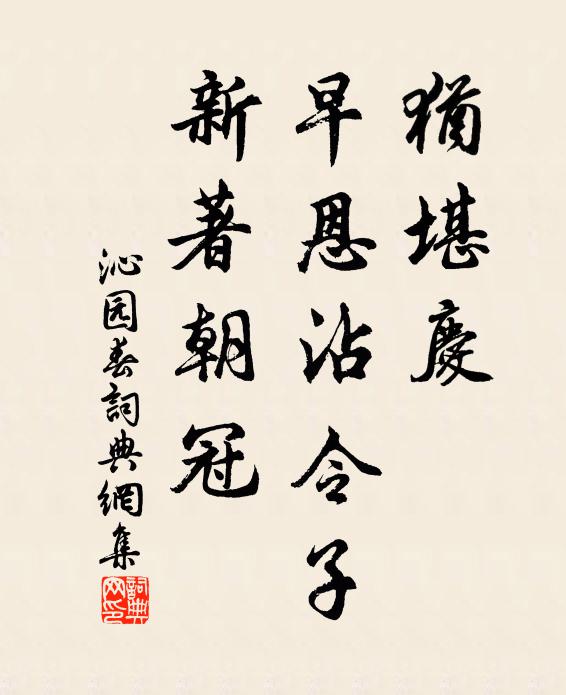 猶堪慶
早恩沾令子
新著朝冠
沁园春詞典網集
詞典网印